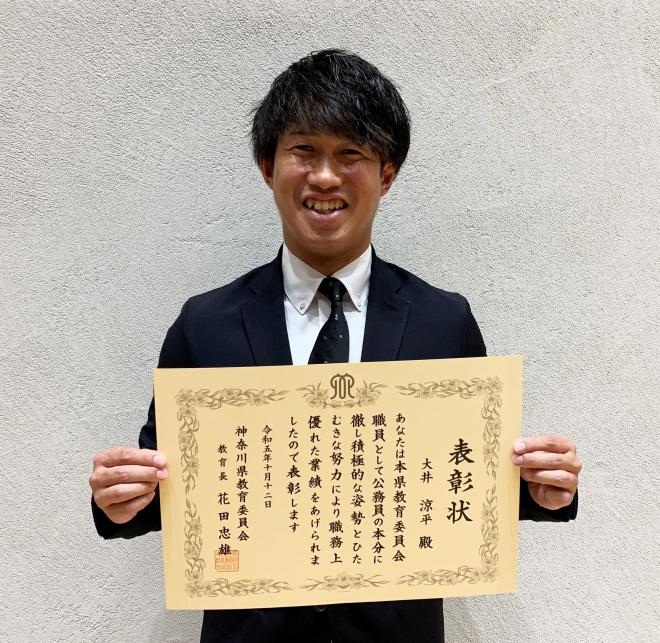 表彰状
大井 涼平 殿
あなたは本県教育委員会
職員として公務員の本分に
徹し積極的な姿勢とひた
むきな努力により職務上
優れた業績をあげられま
したので表彰します
令和五年十月十二日
神奈川県教育委員会
教育長 花田忠雄